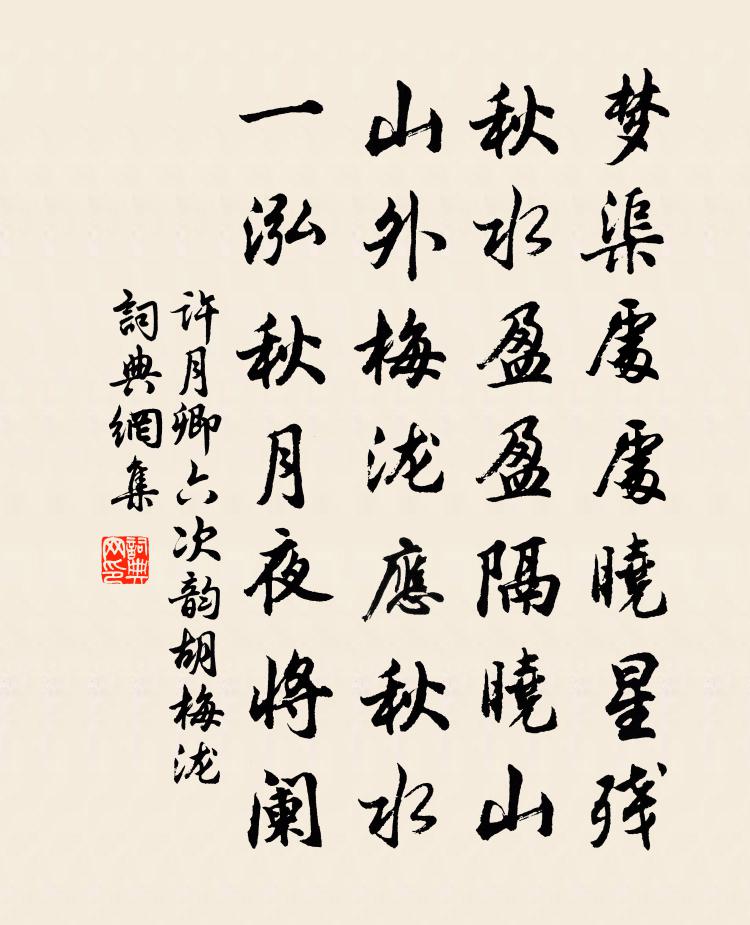 梦渠處處曉星残
秋水盈盈隔曉山
山外梅泷應秋水
一泓秋月夜將阑
许月卿六次韵胡梅泷
詞典網集
詞典
网印